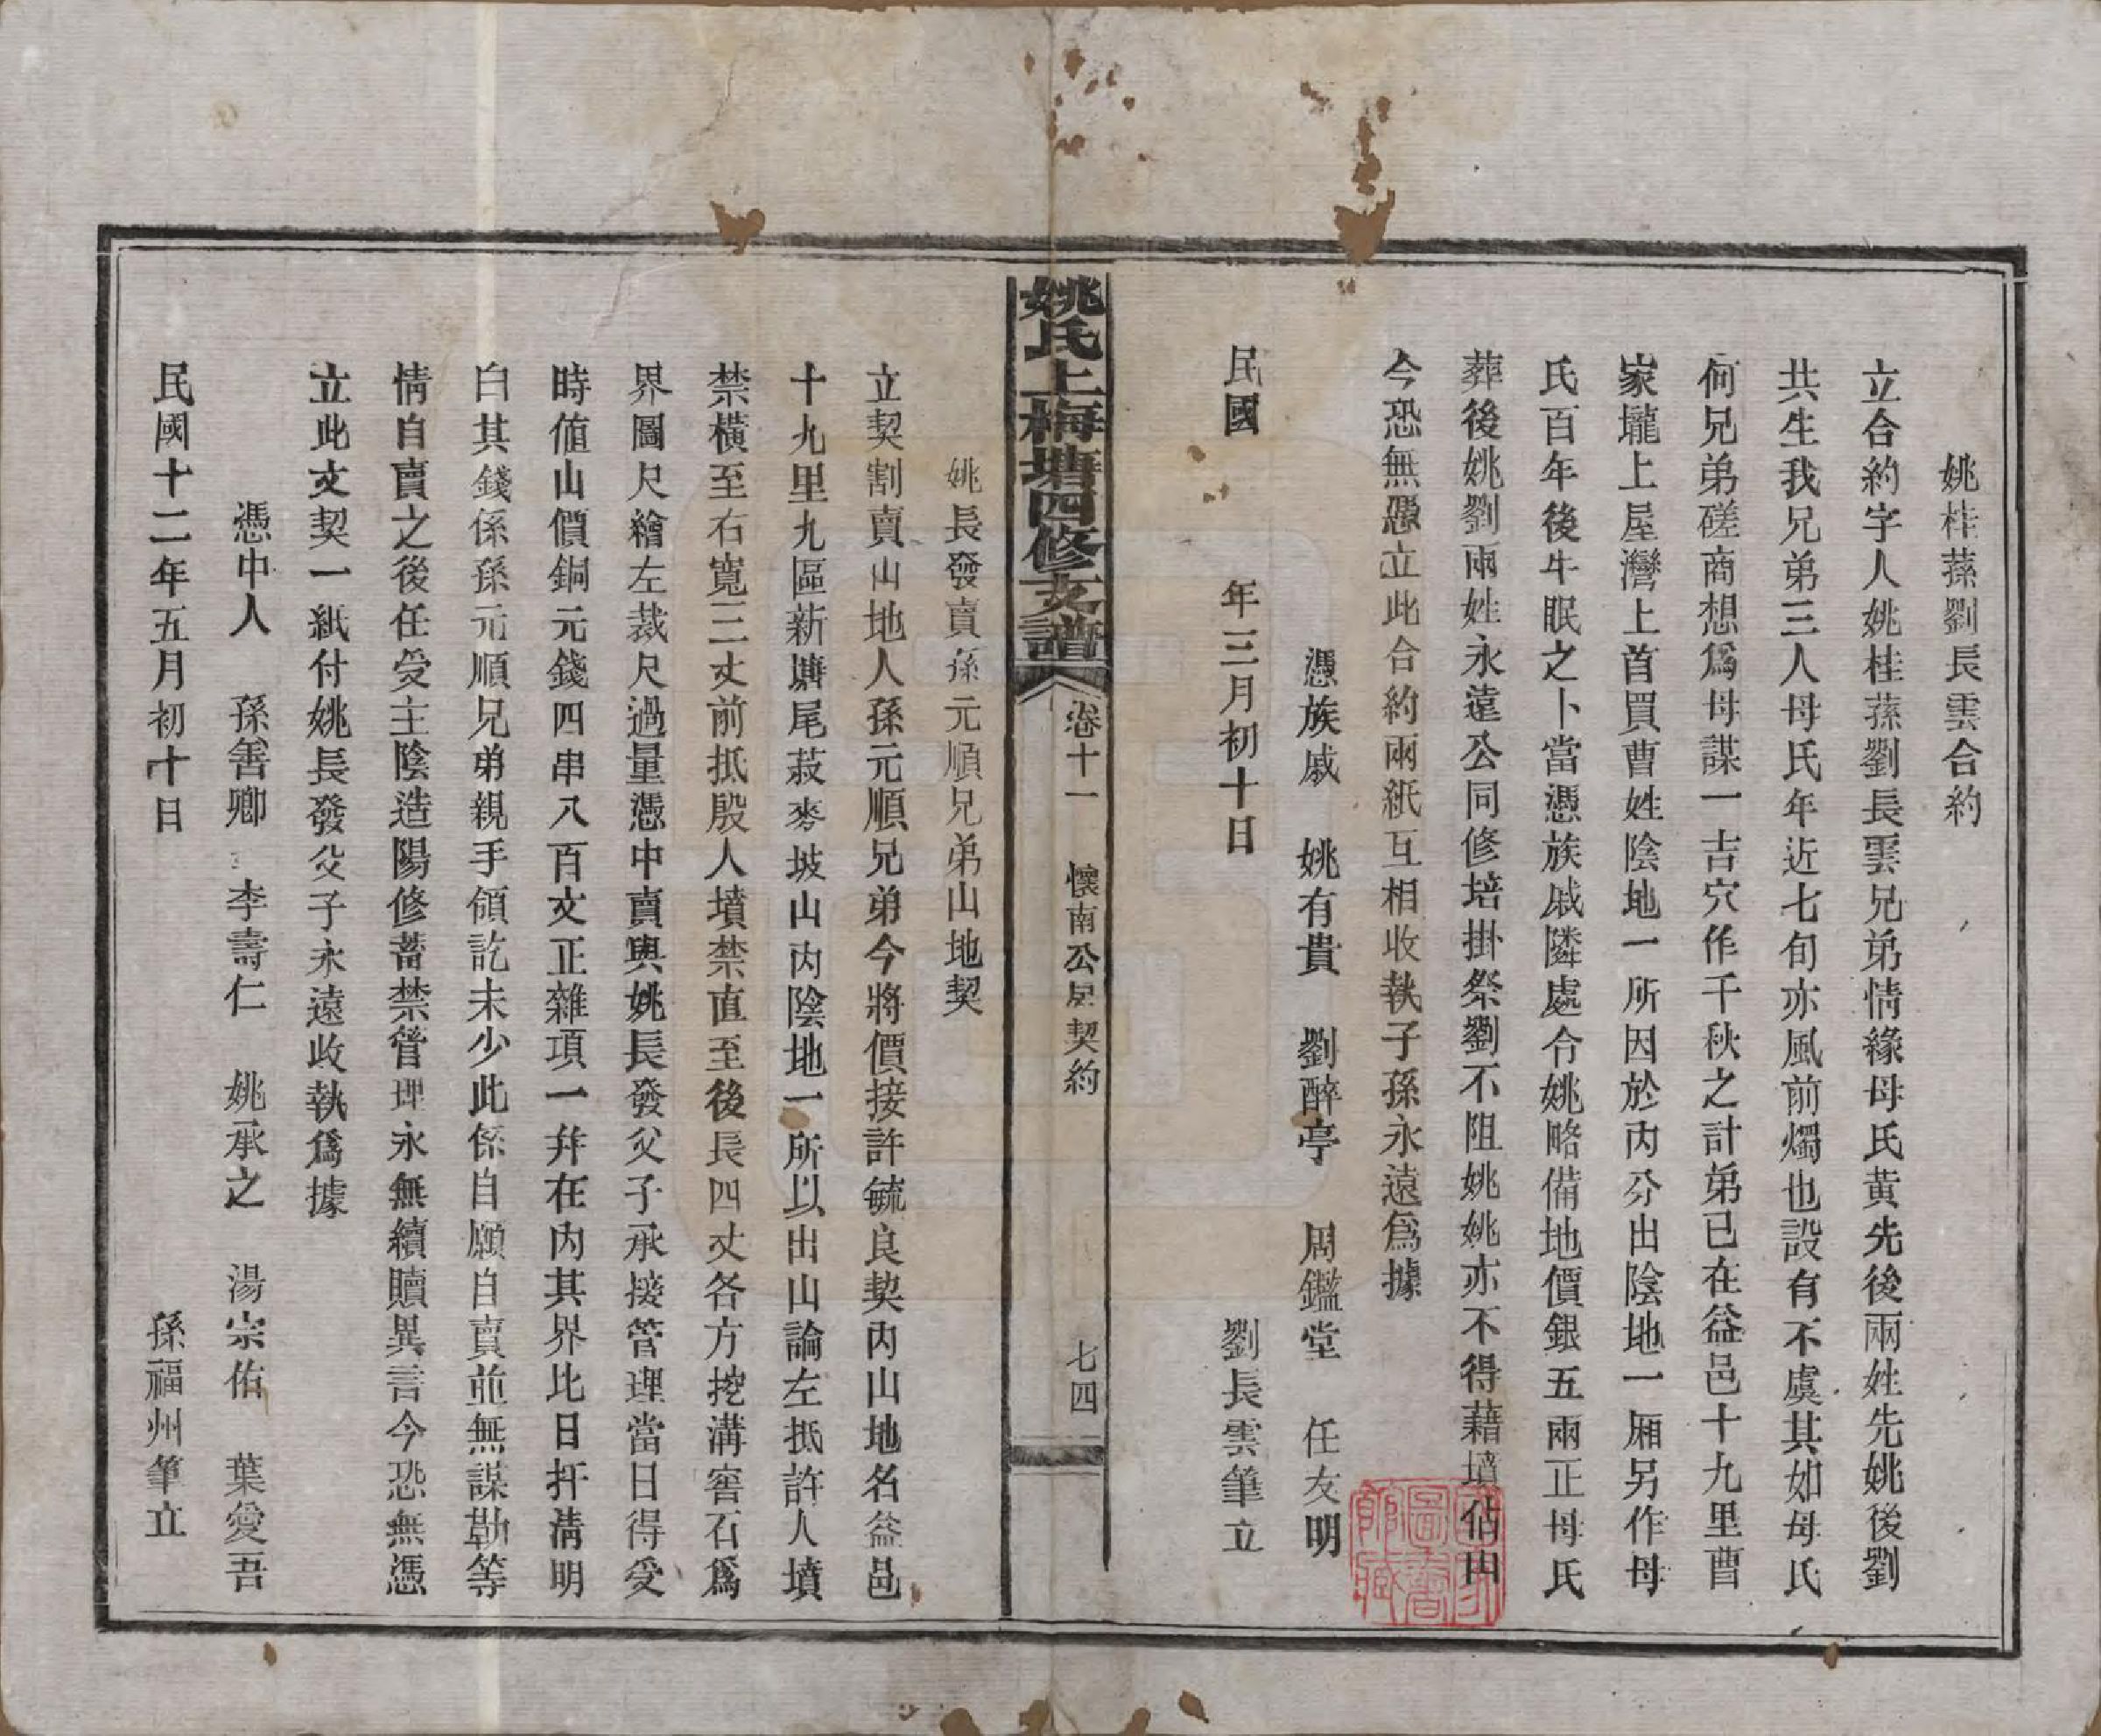 姚桂蓀劉長雲合約
立合約字人姚桂蓀劉長雲兄弟情緣母氏黄先後兩姓先姚後劉
共生我兄弟三人母氏年近七旬亦風前燭也設有不虞其如母氏
何兄弟磋商想爲母謀一吉穴作千秋之計弟已在益邑十九里曹
家壠上屋灣上首買曹姓陰地一所因於內分出陰地一厢另作母
氏百年後牛眠之卜當憑族戚隣處令姚略備地價銀五兩正母氏
葬後姚劉兩姓永遠公同修培掛祭劉不阻姚姚亦不得藉墳佔山
今恐無憑立此合約兩紙互相收執子孫永遠爲據
憑族戚 姚有貴 劉醉亭 周鑑堂 任友明
民國 年三月初十日 劉長雲筆立
姚氏上梅塘四修支譜 卷十一 懷南公房契約 七四
姚長發賣孫元順兄弟山地契
立契割賣山地人孫元順兄弟今將價接許毓良契內山地名益邑
十九里九區新塘尾菽麥坡山內陰地一所以出山論左抵許人墳
禁橫至右寬三丈前抵殷人墳禁直至後長四丈各方挖溝窖石爲
界圖尺繪左裁尺過量憑中賣與姚長發父子承接管理當日得受
時值山價銅元錢四串八百文正雜項一幷在內其界比日扞清明
白其錢係孫元順兄弟親手領訖未少此係自願自賣並無謀勒等
情自賣之後任受主陰造陽修蓄禁管理永無續贖異言今恐無憑
立此文契一紙付姚長發父子永遠收執爲據
憑中人 孫善卿 李壽仁 姚承之 湯宗佑 葉愛吾
民國十二年五月初十日 孫福州筆立